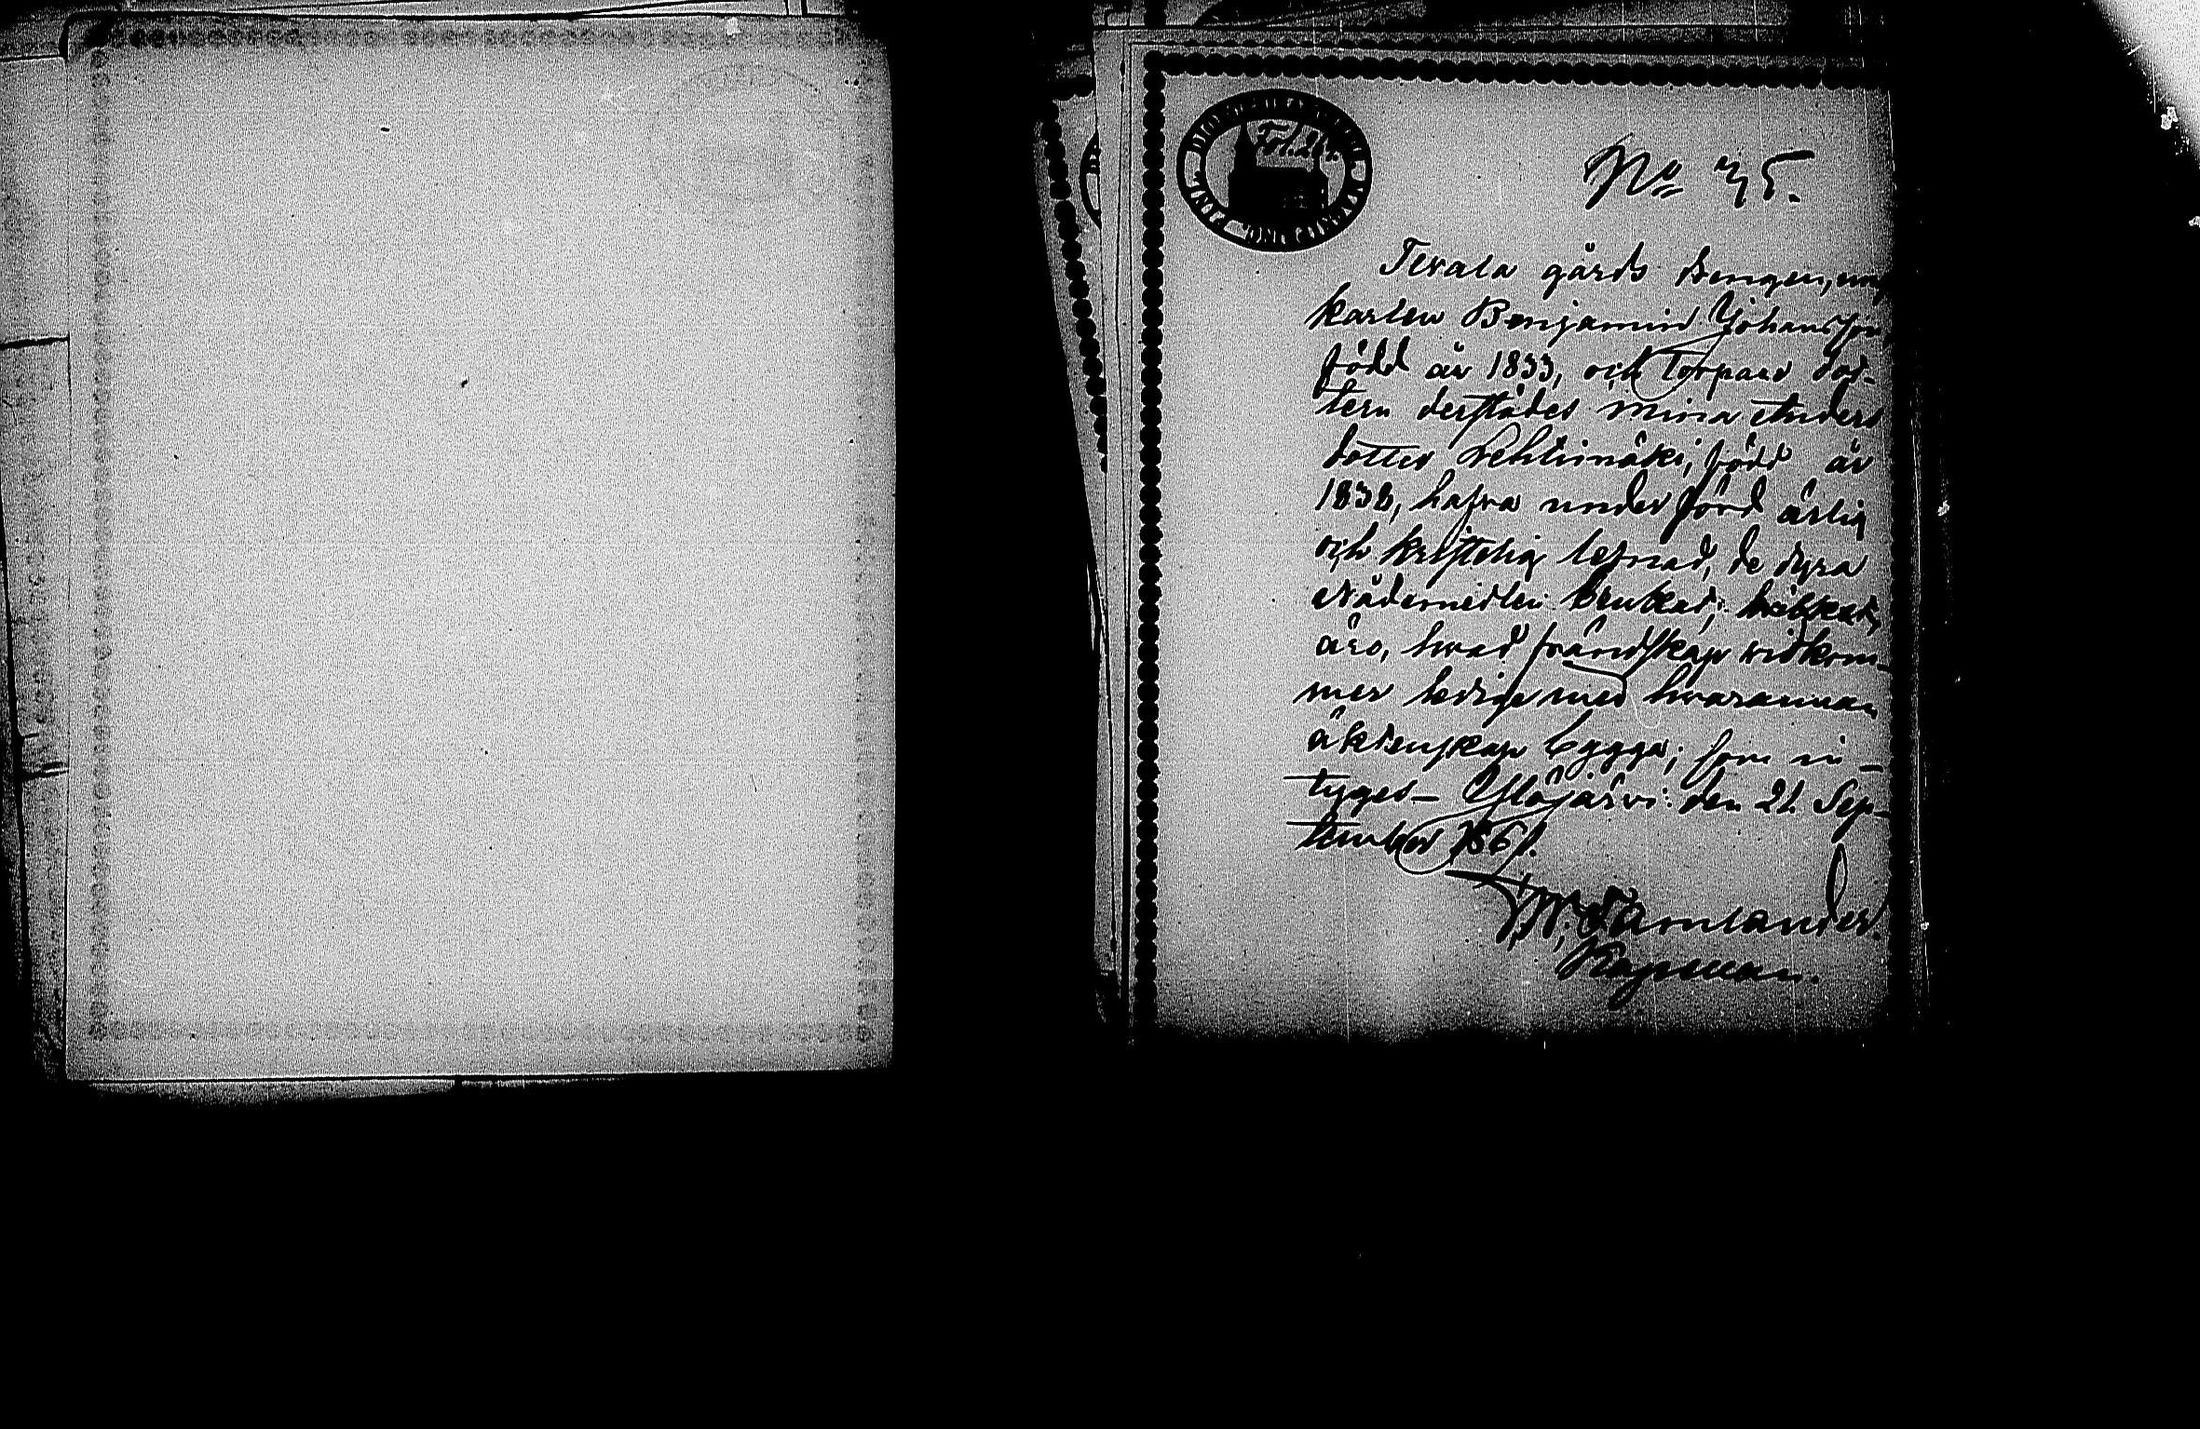 Fol. 21.
No 75.
Tevala gårds drengen, ung
karlen Benjamin Johansson
född år 1833, och Torpare dot-
tern derstädes Mina Anders
dotter Lehtimäki, född år
1838, hafva under förd ärlig
och kristelig lefnad, de dyra
Nådemedlen brukat;
äro, hvad frändskap vidkom-
mer lediga med hvarannan
äktenskap bygga; som in-
tyges Ylöjärvi den 21 Sep-
tember 1861.
Tamlander.
Kapellan.